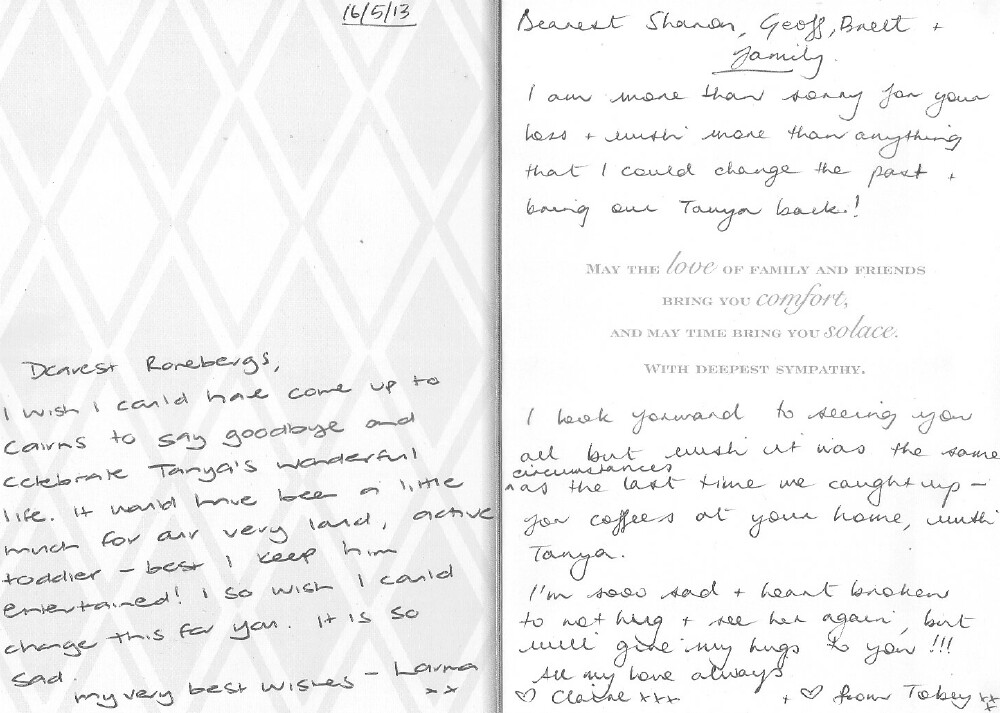 16/5/13
Dearest Ronebergs,
I wish I could have come up to
Cairns to say goodbye and
celebrate Tanya's wonderful
life. It would have been a little
much for our very loud, active
toddler – best I keep him
entertained! I so wish I could
change this for you. It is so
sad.
my very best wishes –
x x
Dearest Sharon, Geoff, Brett +
family.
I am more than sorry for your
loss + wish more than anything
that I could change the past +
bring our Tanya back!
May the love of family and friends
bring you comfort,
and may time bring you solace.
With deepest sympathy.
I look forward to seeing you
all but wish it was the same
circumstances
^ as the last time we caught up –
for coffees at your home, with
Tanya.
I'm sooo sad + heart broken
to not hug + see her again, but
will give my hugs to you !!!
All my love always
♡ Claire xxx + ♡ from Tobey xxx